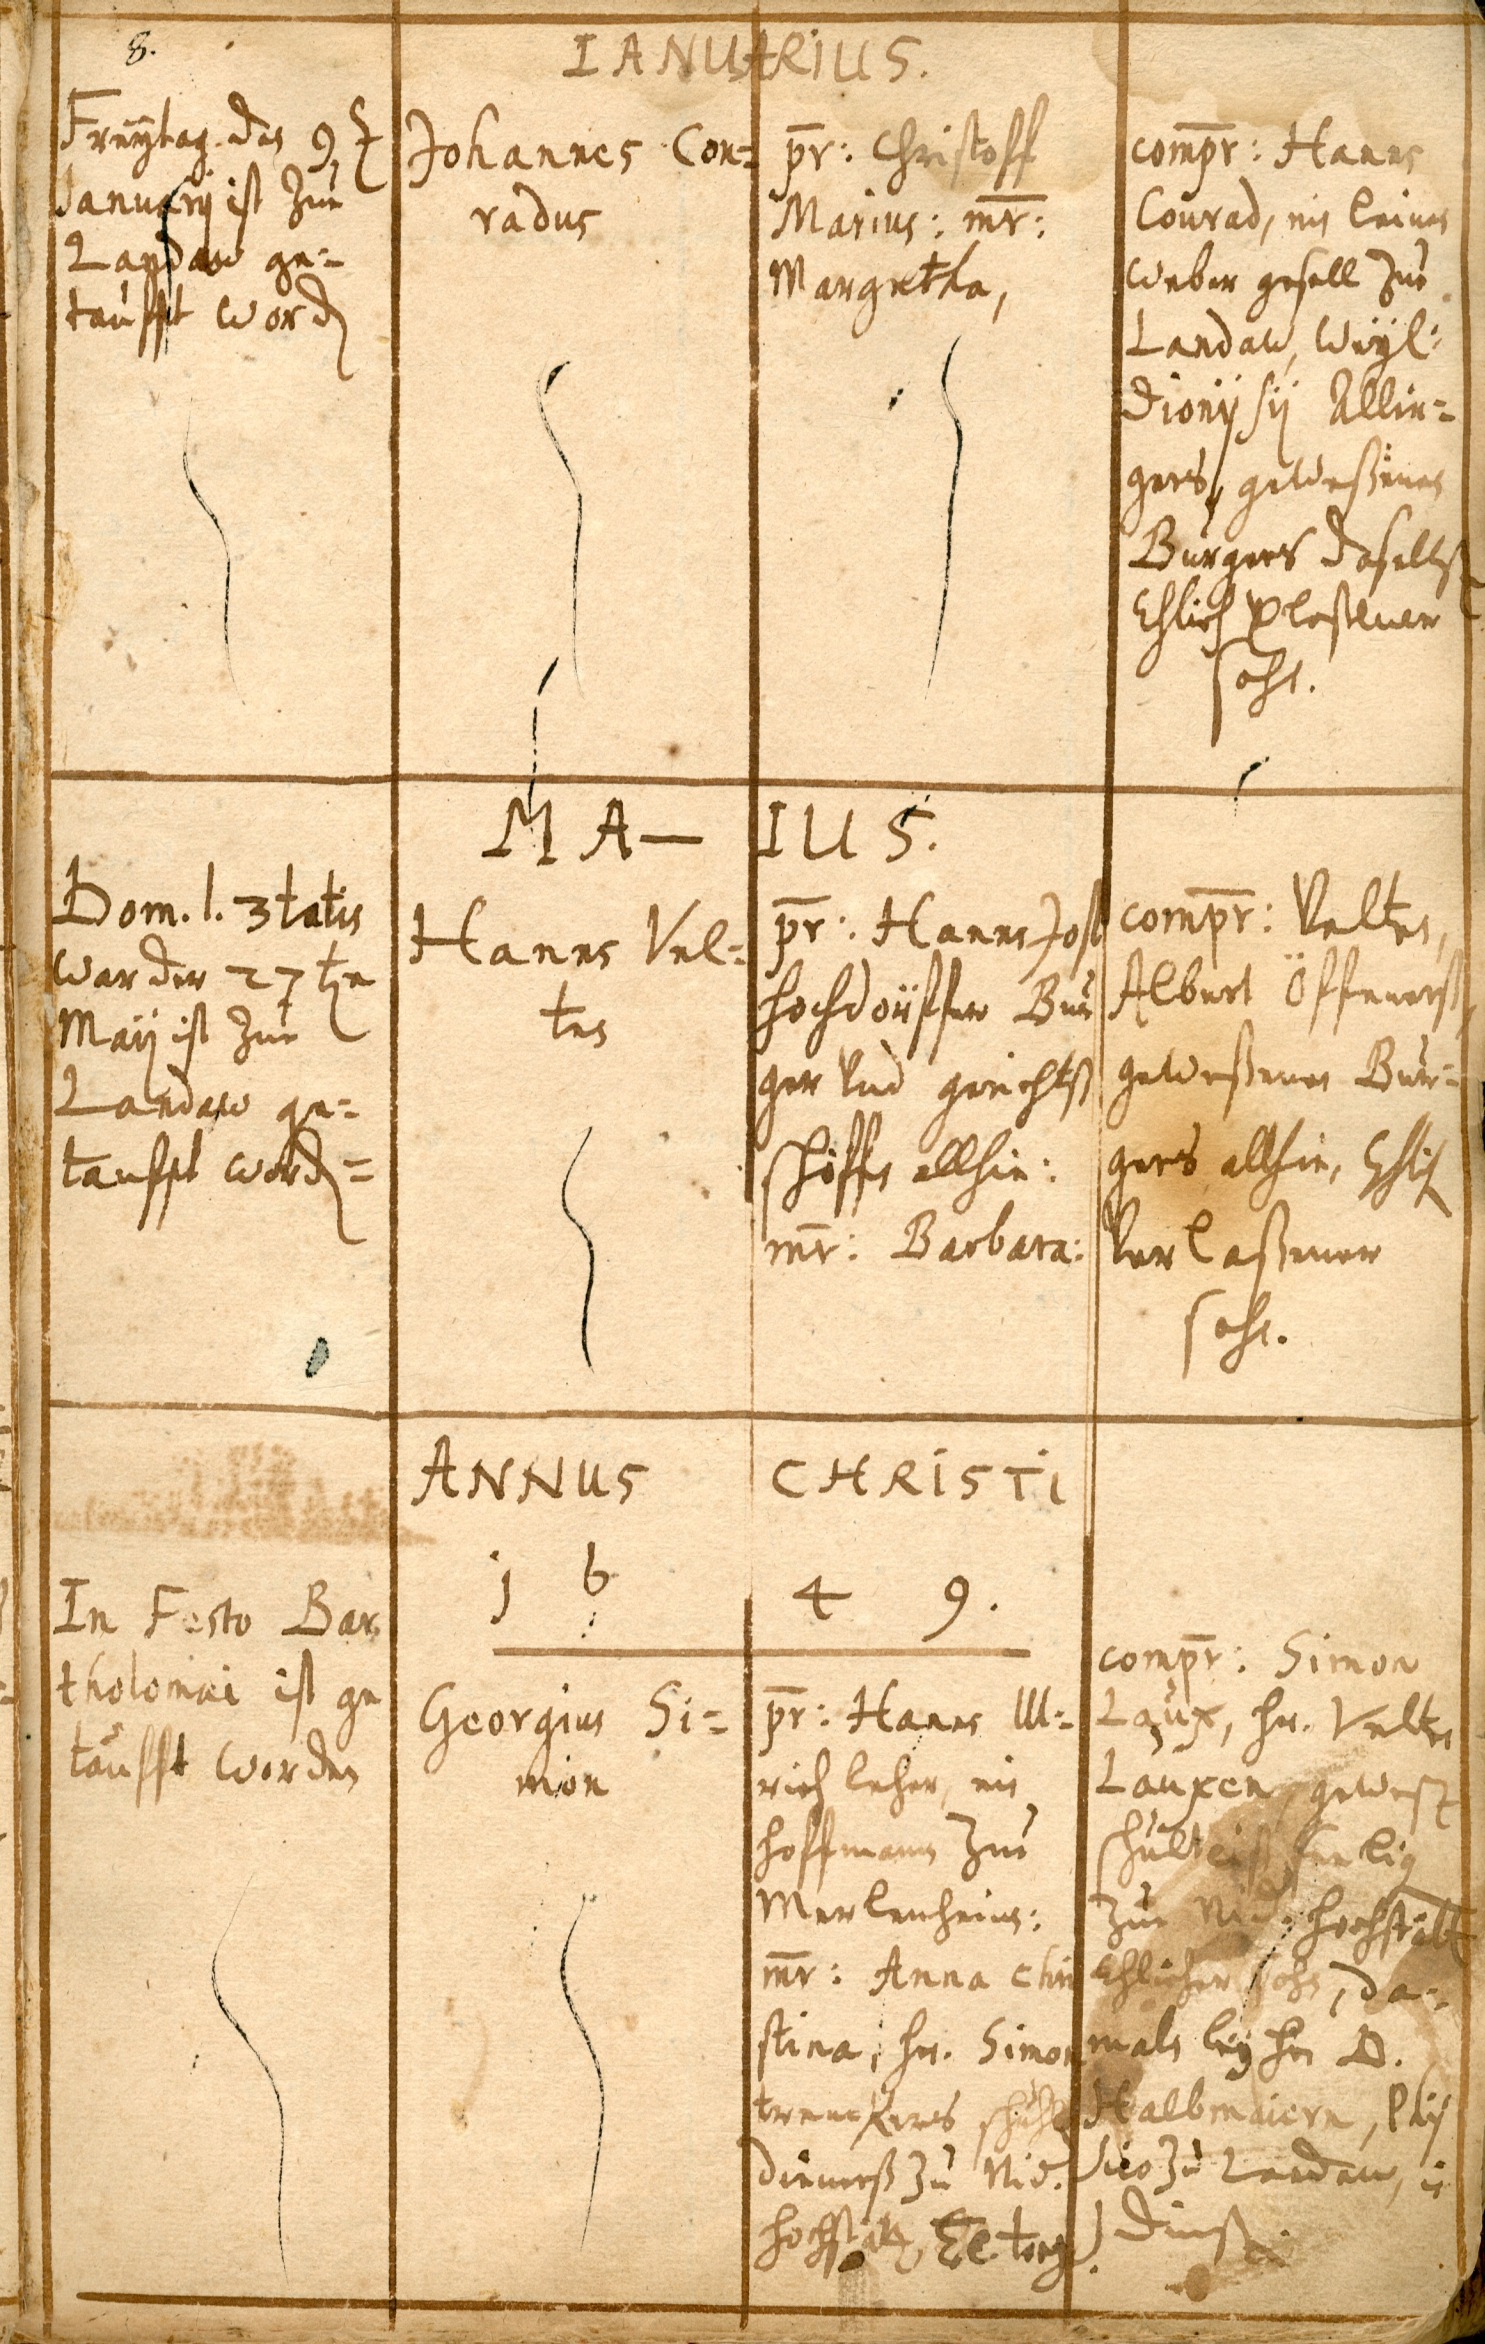 8.
IANUARIUS.
Freÿtag. den 9t
Januarij ist zue
Landaw ge=
taufft word
Johannes Con=
radus
pr: Christoff
Marius: mr:
Margretha,
compr: Hanns
Conrad, ein leines
weber gesell zue
Landaw, weÿl:
Dionÿsij Allin=
gers, geweßenes
Burgers daselbst
Ehlich verlaßener
sohn.
MA— IUS.
Dom. 1. 3tatis
war der 27te
Maij ist zue
Landaw ge=
taufft word=
Hanns Vel=
ten
pr: Hanns Jost
Hochdörffer Bur
ger Vnd gerichtß
schöffe allhie:
mr: Barbara:
compr: Velten,
Albert Öffenerß,
geweßenen Bur=
gers allhie, Ehlich
Verlaßener
sohn.
ANNUS CHRISTI
j 6 4 9.
In Festo Bar
tholomæi ist ge
taufft worden
Georgius Si=
mon
pr: Hanns Ul=
rich leher, ein
hoffmann zue
Merlenheim:
mr: Anna Chri
stina, hn. Simon
dienerß zu Nid.
hochstatt, Ee. tochr.
compr: Simon
Laux, hn. Velten
Lauxen, gewesz
schulteiß seelig
zue Nid. hochstatt
Ehlicher sohn, da=
mals beÿ hn D.
Halbmaiern, Phÿ
sico zu Landaw, in
dienst.